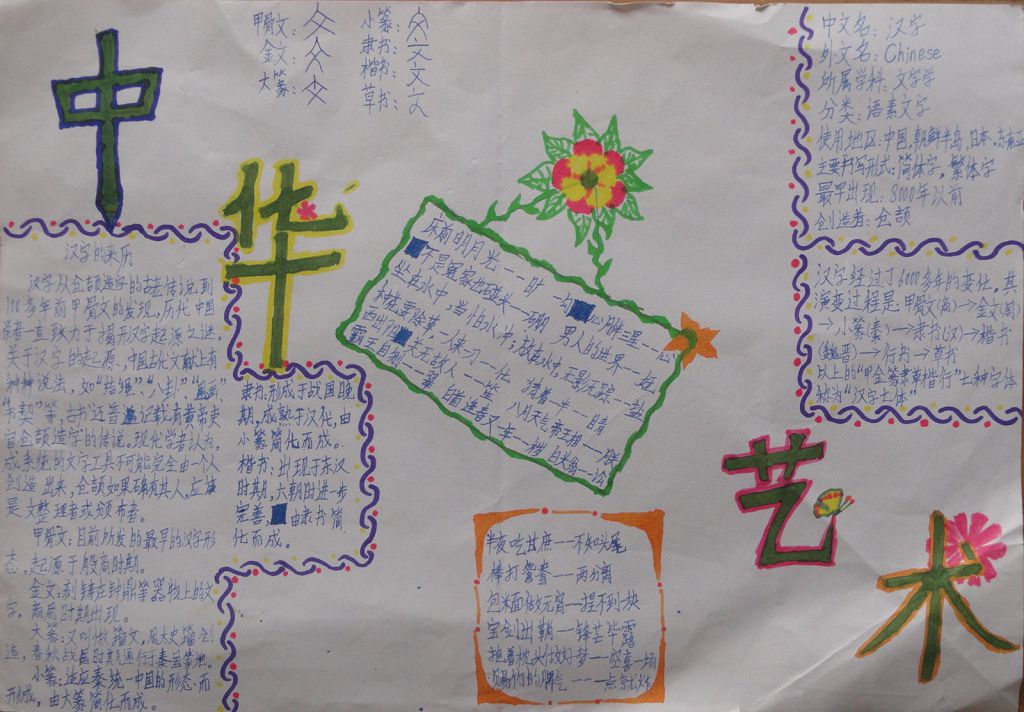 中华艺术
甲骨文：文
金文：文
大篆：文
小篆：文
隶书：文
楷书：文
草书：文
中文名：汉字
外文名：Chinese
所属学科：文字学
分类：语素文字
使用地区：中国，朝鲜半岛，日本，东南亚
主要书写形式：简体字，繁体字
最早出现：8000年以前
创造者：仓颉
汉字经过了6000多年的变化，其
演变过程是甲骨文(商)→金文(周)
→小篆(秦)→隶书(汉)→楷书
(魏晋)→行书→草书
以上的“甲金篆隶草楷行”七种字体
称为“汉字七体”
汉字的来历
汉字从仓颉造字的古老传说到
100多年前甲骨文的发现，历代中国
学者一直致力于揭开汉字起源之谜。
关于汉字的起源，中国古代文献上有
种种说法，如“结绳”“八卦”“图画”
“书契”等，古书还普遍记载有黄帝史
官仓颉造字的传说。现代学者认为，
成系统的文字工具不可能完全由一个人
创造出来，仓颉如果确有其人，应该
是文字整理者或颁布者。
甲骨文：目前所发的最早的汉字形
态，起原于殷商时期。
金文：刻铸在钟鼎等器物上的文
字，商周时期出现。
大篆：又叫做籀文，周太史籀创
造，春秋战国时期通行于秦国等地。
小篆：适应秦统一中国的形态而
形成，由大篆简化而成。
隶书：形成于战国晚
期，成熟于汉代，由
小篆简化而成。
楷书：出现于东汉
时期，六朝时进一步
完善，由隶书简
化而成。
床前明月光
不是冤家抱头
一时
坐在水中
男人的世界
霸王自刎
半夜吃甘蔗——不知头尾
棒打鸳鸯——两分离
包米面做元宵——捏不到块
宝剑出鞘——锋芒毕露
抱着枕头做好梦——空喜一场
炮竹的脾气——一点就炸